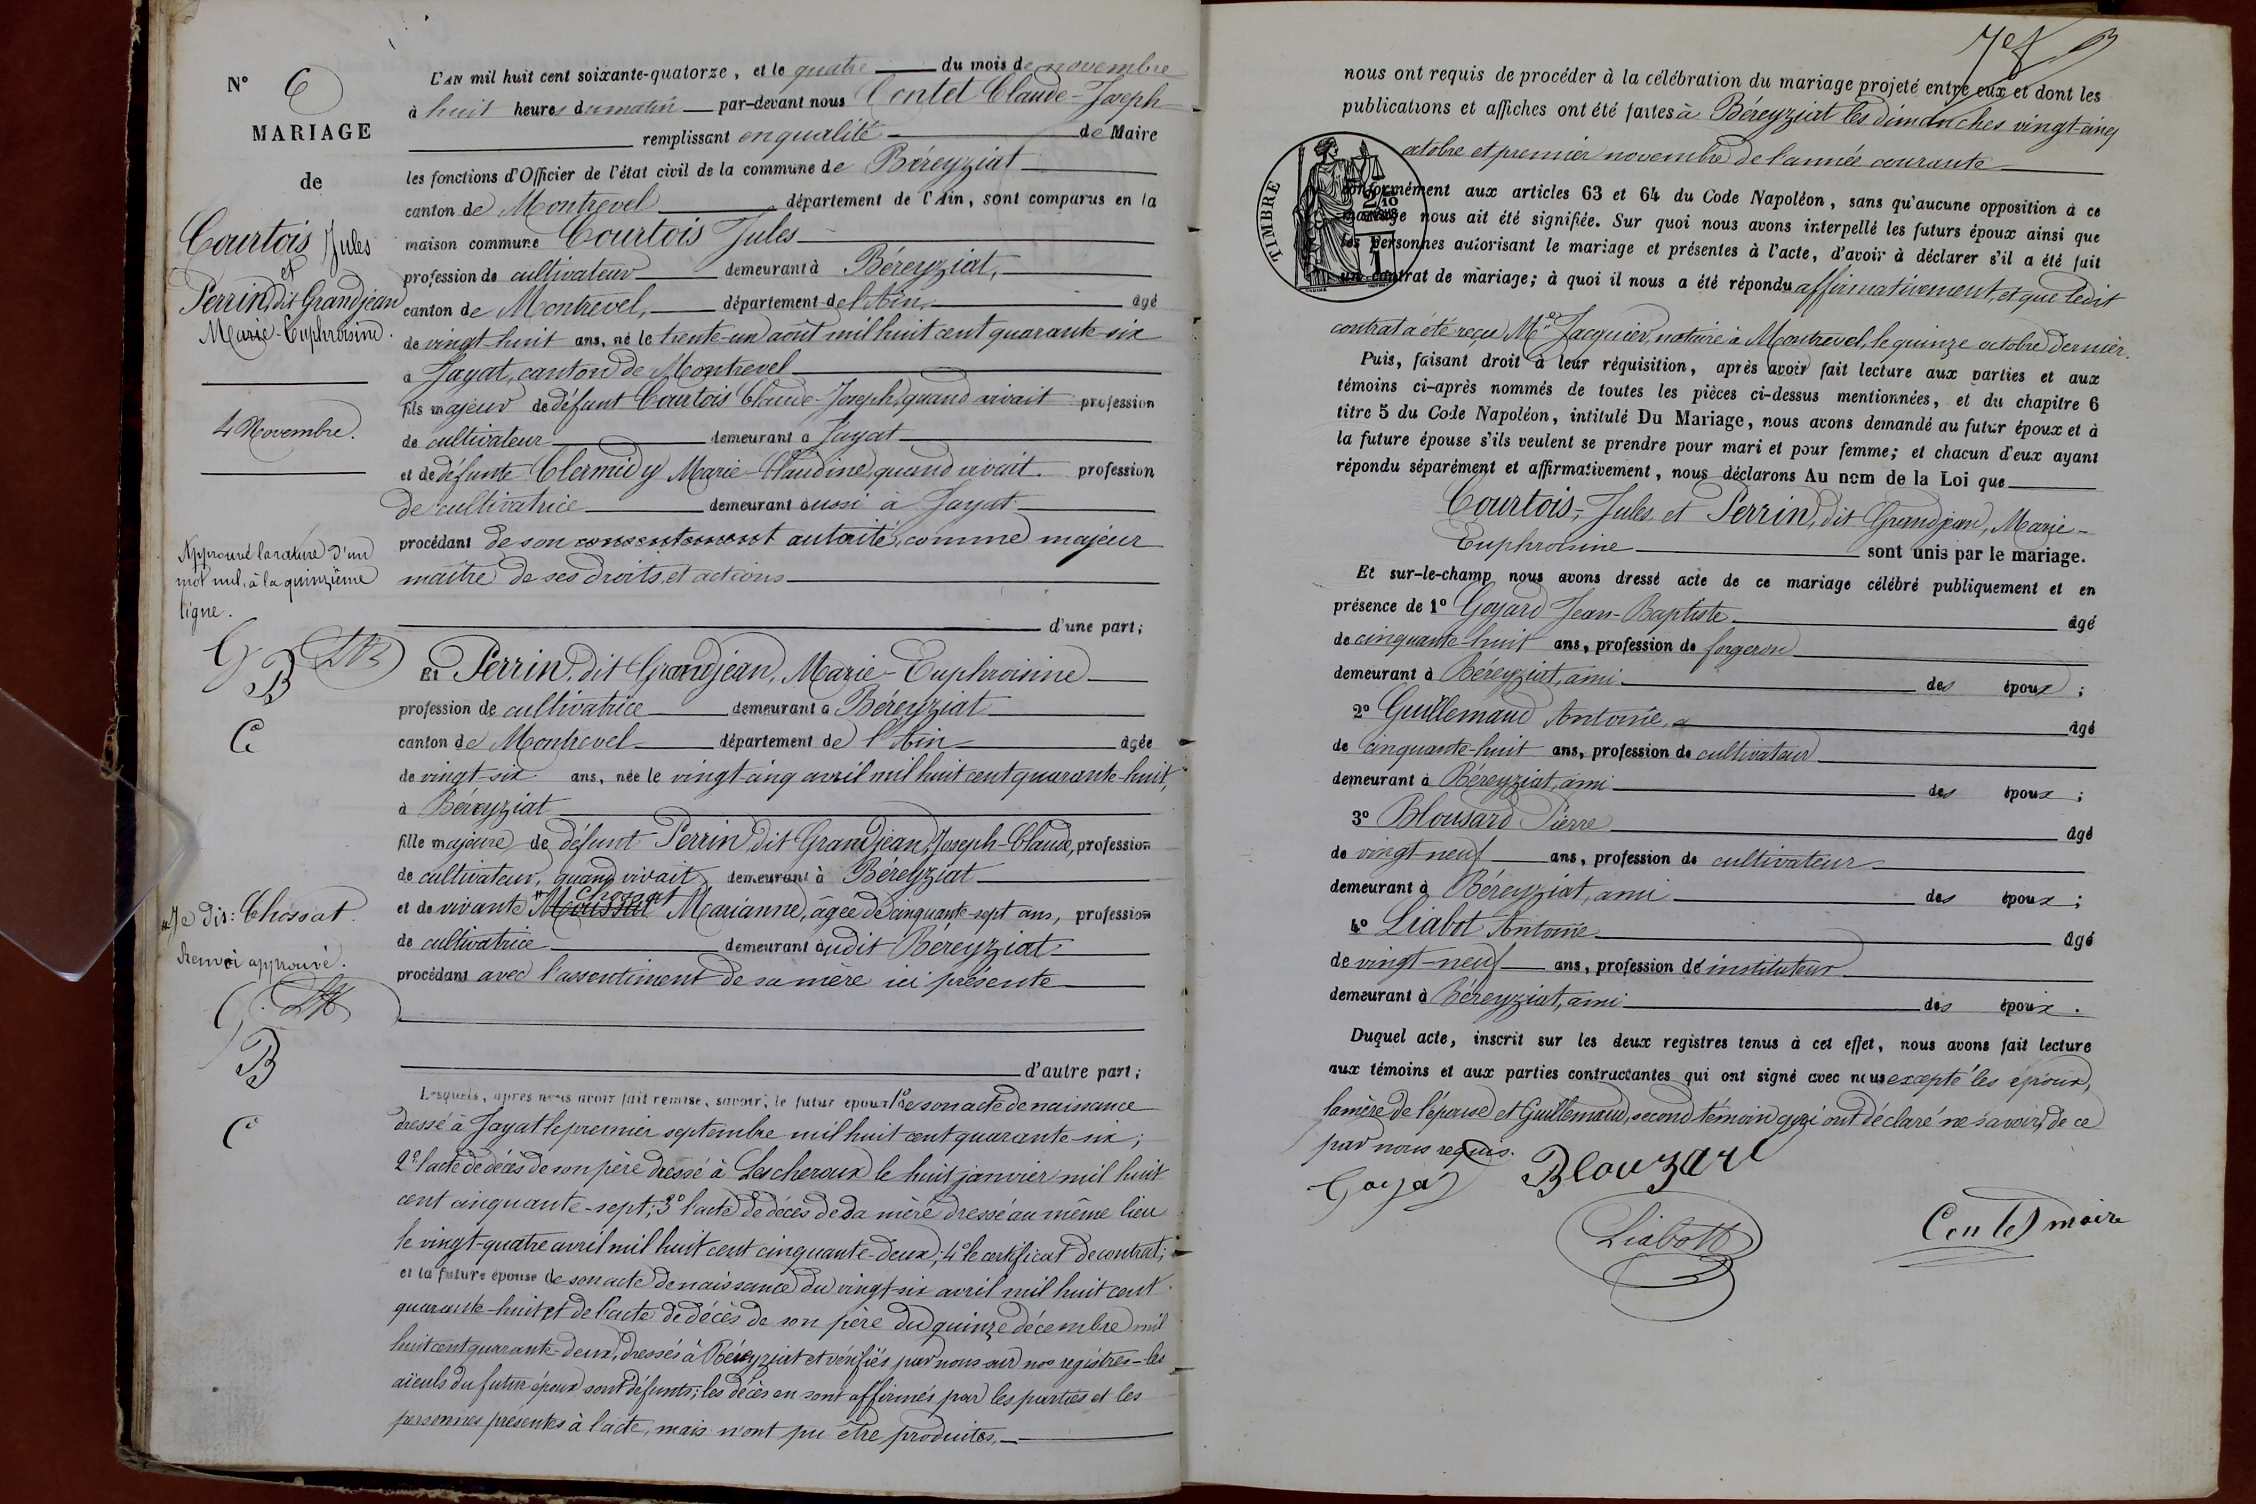 N° 6
MARIAGE
de
Courtois Jules
et
Perrin, dit Grandjean
Marie-Euphroisine.
4 Novembre.
Approuvé la rature d'un
mot nul, à la quinzième
ligne.
G
B
C
"Je dis: Chossat.
Renvoi approuvé.
G
B
C
L'AN mil huit cent soixante-quatorze, et le quatre du mois de novembre
à huit heures du matin par-devant nous Contet Claude-Joseph
remplissant en qualité de Maire
les fonctions d'Officier de l'état civil de la commune de Béreyziat
canton de Montrevel département de l'Ain, sont comparus en la
maison commune Courtois Jules
profession de cultivateur demeurant à Béreyziat,
canton de Montrevel, département de l'Ain, âgé
de vingt-huit ans, né le trente-un août mil huit cent quarante-six
à Jayat, canton de Montrevel
fils majeur de défunt Courtois Claude-Joseph, quand vivait profession
de cultivateur demeurant à Jayat
et de défunte Clermidy Marie-Claudine, quand vivait profession
de cultivatrice demeurant aussi à Jayat
procédant de son consentement autorité, comme majeur
maître de ses droits et actions
d'une part;
Et Perrin, dit Grandjean, Marie-Euphroisine
profession de cultivatrice demeurant à Béreyziat
canton de Montrevel département de l'Ain âgée
de vingt-six ans, née le vingt-cinq avril mil huit cent quarante-huit,
à Béreyziat
fille majeure de défunt Perrin dit Grandjean, Joseph-Claude, profession
de cultivateur, quand vivait, demeurant à Béreyziat
Chossat
et de vivante " Marianne, âgée de cinquante-sept ans, profession
de cultivatrice demeurant audit Béreyziat
procédant avec l'assentiment de sa mère ici présente
d'autre part;
Lesquels, après nous avoir fait remise, savoir: le futur époux 1° de son acte de naissance
dressé à Jayat le premier septembre mil huit cent quarante-six;
2° l'acte de décès de son père dressé à Lescheroux le huit janvier mil huit
cent cinquante-sept; 3° l'acte de décès de sa mère dressé au même lieu
le vingt-quatre avril mil huit cent cinquante-deux; 4° le certificat de contrat;
et la future épouse de son acte de naissance du vingt-six avril mil huit cent
quarante-huit et de l'acte de décès de son père du quinze décembre mil
huit cent quarante-deux, dressés à Béreyziat et vérifiés par nous sur nos registres - les
aïeuls du futur époux sont défunts; les décès en sont affirmés par les parties et les
personnes présentes à l'acte, mais n'ont pu être produites.
7e f
nous ont requis de procéder à la célébration du mariage projeté entre eux et dont les
publications et affiches ont été faites à Béreyziat les dimanches vingt-cinq
octobre et premier novembre de l'année courante
TIMBRE
conformément aux articles 63 et 64 du Code Napoléon, sans qu'aucune opposition à ce
mariage nous ait été signifiée. Sur quoi nous avons interpellé les futurs époux ainsi que
les personnes autorisant le mariage et présentes à l'acte, d'avoir à déclarer s'il a été fait
un contrat de mariage; à quoi il nous a été répondu affirmativement, et que ledit
contrat a été reçu Me Jacquier, notaire à Montrevel, le quinze octobre dernier.
Puis, faisant droit à leur réquisition, après avoir fait lecture aux parties et aux
témoins ci-après nommés de toutes les pièces ci-dessus mentionnées, et du chapitre 6
titre 5 du Code Napoléon, intitulé Du Mariage, nous avons demandé au futur époux et à
la future épouse s'ils veulent se prendre pour mari et pour femme; et chacun d'eux ayant
répondu séparément et affirmativement, nous déclarons Au nom de la Loi que
Courtois, Jules et Perrin, dit Grandjean, Marie-
Euphroisine sont unis par le mariage.
Et sur-le-champ nous avons dressé acte de ce mariage célébré publiquement et en
présence de 1° Goyard Jean-Baptiste âgé
de cinquante-huit ans, profession de forgeron
demeurant à Béreyziat, ami des époux;
2° Guillemaud Antoine, âgé
de cinquante-huit ans, profession de cultivateur
demeurant à Béreyziat, ami des époux;
3° Blousard Pierre âgé
de vingt-neuf ans, profession de cultivateur
demeurant à Béreyziat, ami des époux;
4° Liabot Antoine âgé
de vingt-neuf ans, profession de instituteur
demeurant à Béreyziat, ami des époux.
Duquel acte, inscrit sur les deux registres tenus à cet effet, nous avons fait lecture
aux témoins et aux parties contractantes qui ont signé avec nous excepté les époux,
la mère de l'épouse et Guillemaud, second témoin qui ont déclaré ne savoir, de ce
par nous requis.
Goyard Blouzard
Liabot
Contet maire